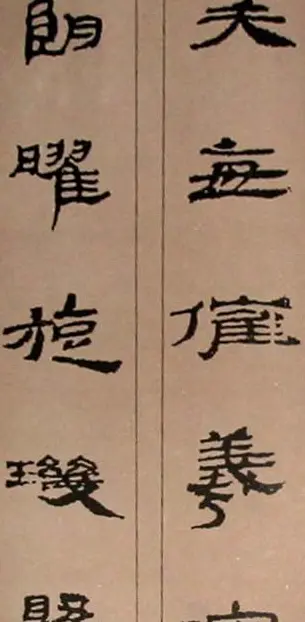 矢每催羲
朗曜旋璣